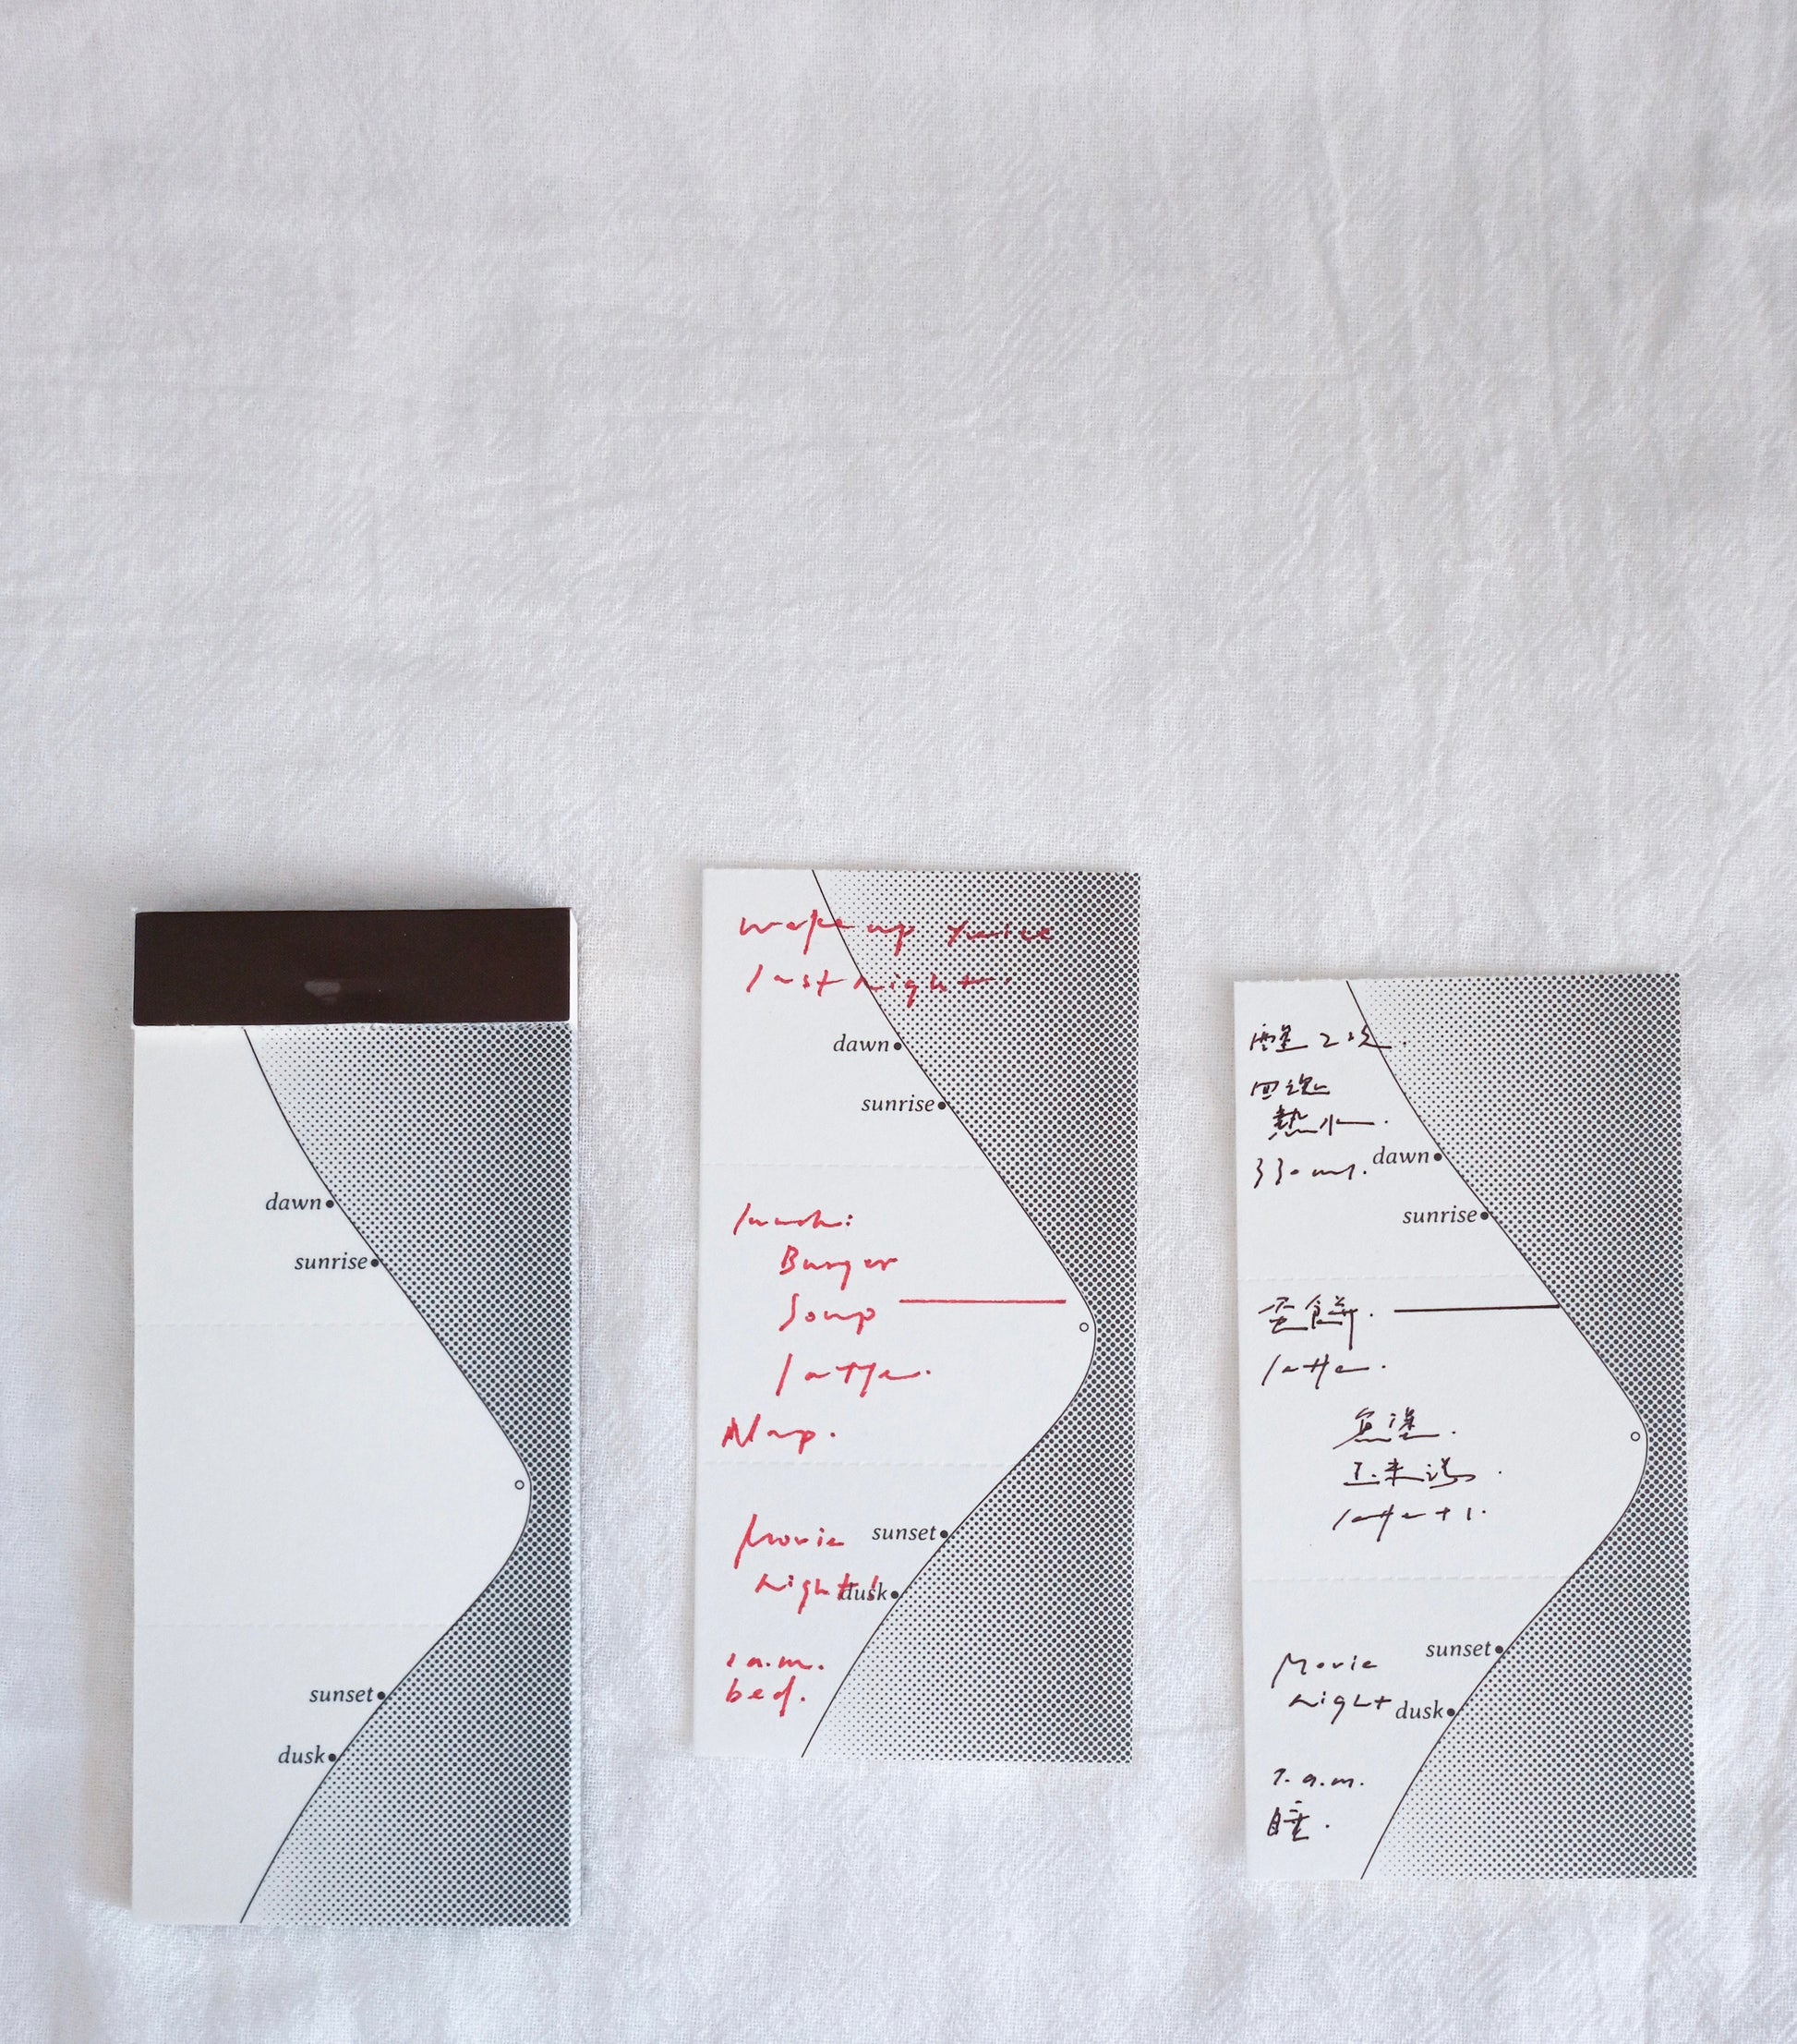 dawn
sunrise
sunset
dusk
woke up twice
last night.
dawn
sunrise
lunch:
Burger
Soup
latte.
Nap.
Movie
sunset
night!
dusk
1 a.m.
bed.
醒2次.
回魂
熱水.
330 mL.
dawn
sunrise
蛋餅.
latte.
latte+1.
Movie
sunset
night
dusk
1 a.m.
睡.